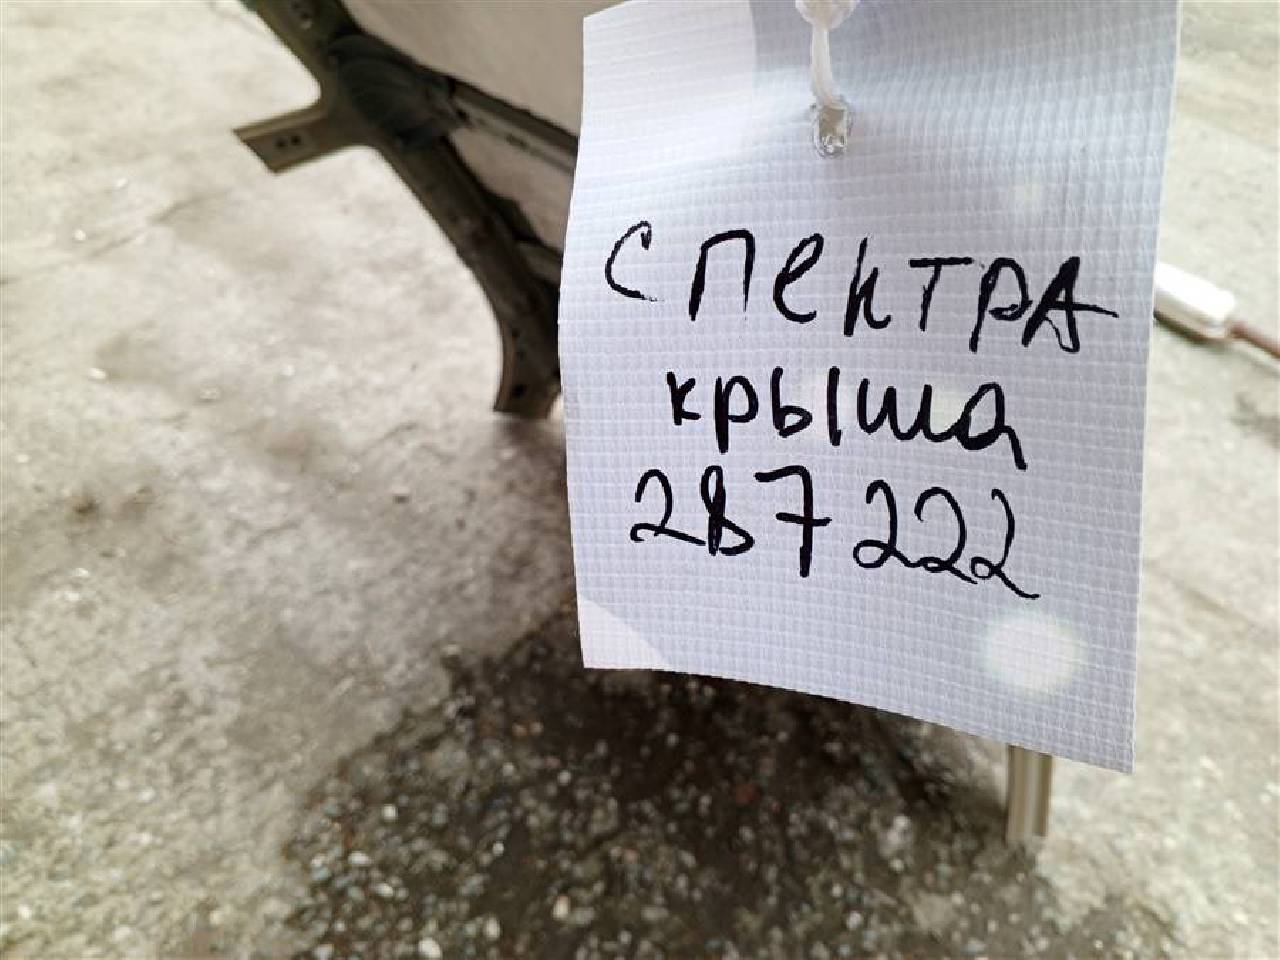 СПЕКТРА
крыша
287222